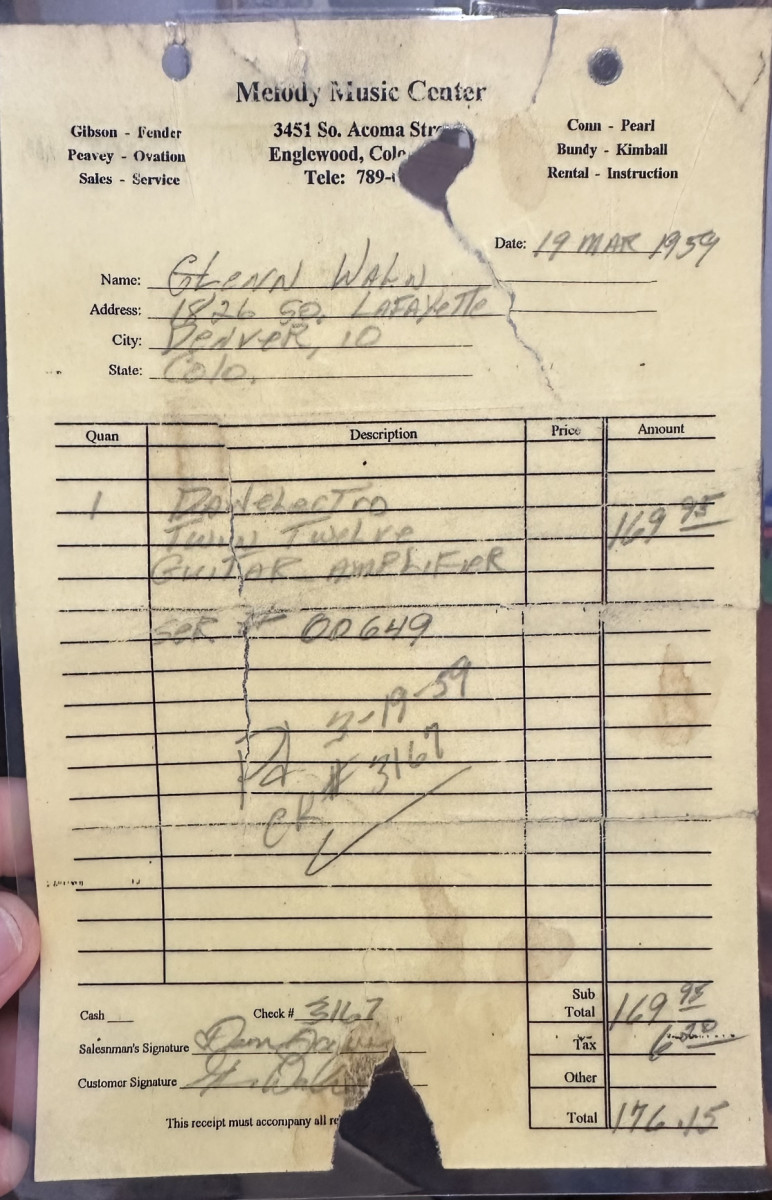 Melody Music Center
Gibson - Fender
Peavey - Ovation
Sales - Service
3451 So. Acoma Str
Englewood, Colo
Tele: 789-
Conn - Pearl
Bundy - Kimball
Rental - Instruction
Date: 19 MAR 1959
Name: GLENN WALN
Address: 1826 SO. LAFAYETTE
City: DENVER, 10
State: Colo.
Quan Description Price Amount
1 DANELECTRO
TWIN TWELVE 169 95
GUITAR AMPLIFIER
SER # 00649
Pd 3-19-59
CK # 3167
Cash Check # 3167
Salesnman's Signature
Customor Signature
This receipt must accompany all re
Sub Total 169 95
Tax 6 20
Other
Total 176.15